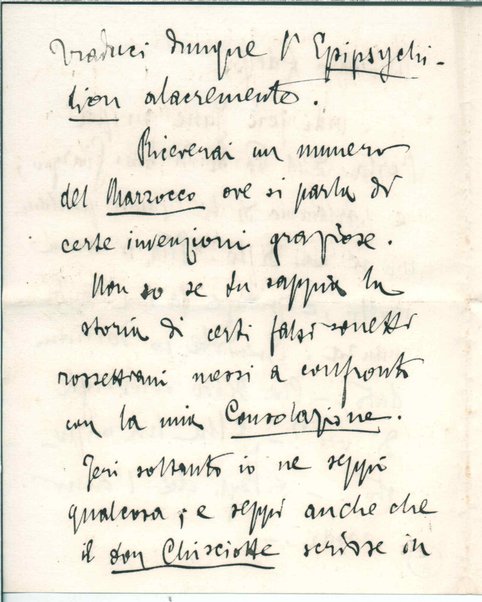 Traduci dunque l'Epipsychi-
dion alacremente.
Riceverai un numero
del Marzocco ove si parla di
certe invenzioni graziose.
Non so se tu sappia la
storia di certi falsi sonetti
rossettiani messi a confronto
con la mia Consolazione.
Jeri soltanto io ne seppi
qualcosa; e seppi anche che
il don Chisciotte scrisse in